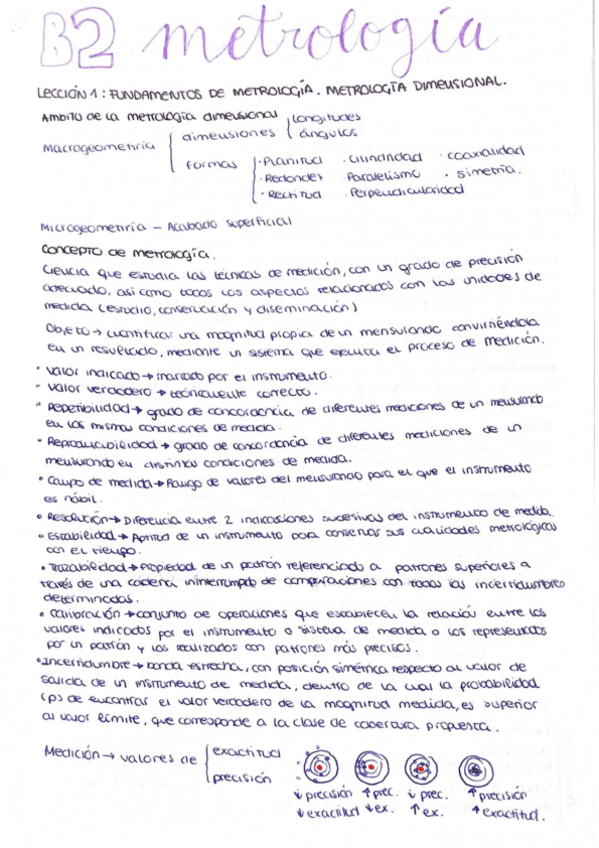 B2 metrología
LECCIÓN 1: FUNDAMENTOS DE METROLOGÍA. METROLOGÍA DIMENSIONAL.
Ambito de la metrología dimensional
Macrogeometría
dimensiones
longitudes
ángulos.
formas
· Planitud · Cilindridad · coaxialidad
· Redondez Paralelismo · simetría.
· Rectitud · Perpendicularidad
Microgeometría - Acabado superficial
Concepto de metrología.
Ciencia que estudia las técnicas de medición, con un grado de precisión
adecuado, así como todos los aspectos relacionados con las unidades de
medida (estudio, conservación y diseminación)
Objeto → cuantificar una magnitud propia de un mensurando convirtiéndola
en un resultado, mediante un sistema que ejecuta el proceso de medición.
• Valor indicado → marcado por el instrumento.
- Valor verdadero → teóricamente correcto.
• Repetibilidad → grado de concordancia de diferentes mediciones de un mensurando
en las mismas condiciones de medida.
• Reproducibilidad → grado de concordancia de diferentes mediciones de un
mensurando en distintas condiciones de medida.
• Campo de medida → Rango de valores del mensurando para el que el instrumento
es hábil.
• Resolución → Diferencia entre 2 indicaciones sucesivas del instrumento de medida.
• Estabilidad → Aptitud de un instrumento para conservar sus cualidades metrológicas
con el tiempo.
• Trazabilidad → propiedad de un patrón referenciado a patrones superiores a
través de una cadena ininterrumpida de comparaciones con todas las incertidumbres
determinadas.
• Calibración → conjunto de operaciones que establecen la relación entre los
valores indicados por el instrumento o sistema de medida o los representados
por un patrón y los realizados con patrones más precisos.
• Incertidumbre → banda estrecha, con posición simétrica respecto al valor de
salida de un instrumento de medida, dentro de la cual la probabilidad
(p) de encontrar el valor verdadero de la magnitud medida, es superior
al valor límite, que corresponde a la clase de cobertura propuesta.
Medición → valores de
exactitud
precisión
↓ precisión ↑ prec. ↓ prec. ↑ precisión
↓ exactitud ↓ ex. ↑ ex. ↑ exactitud.